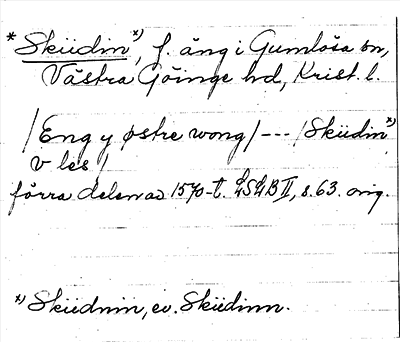 *Skiidin*), f. äng i Gumlösa sn,
Västra Göinge hd, Krist. l.
/Eng y østre wong/ --- /Skiidin*)
v les/
förra delen av 1570-t. LSLB II, s. 63. orig.
*) Skiidnin, ev. Skiidinn.